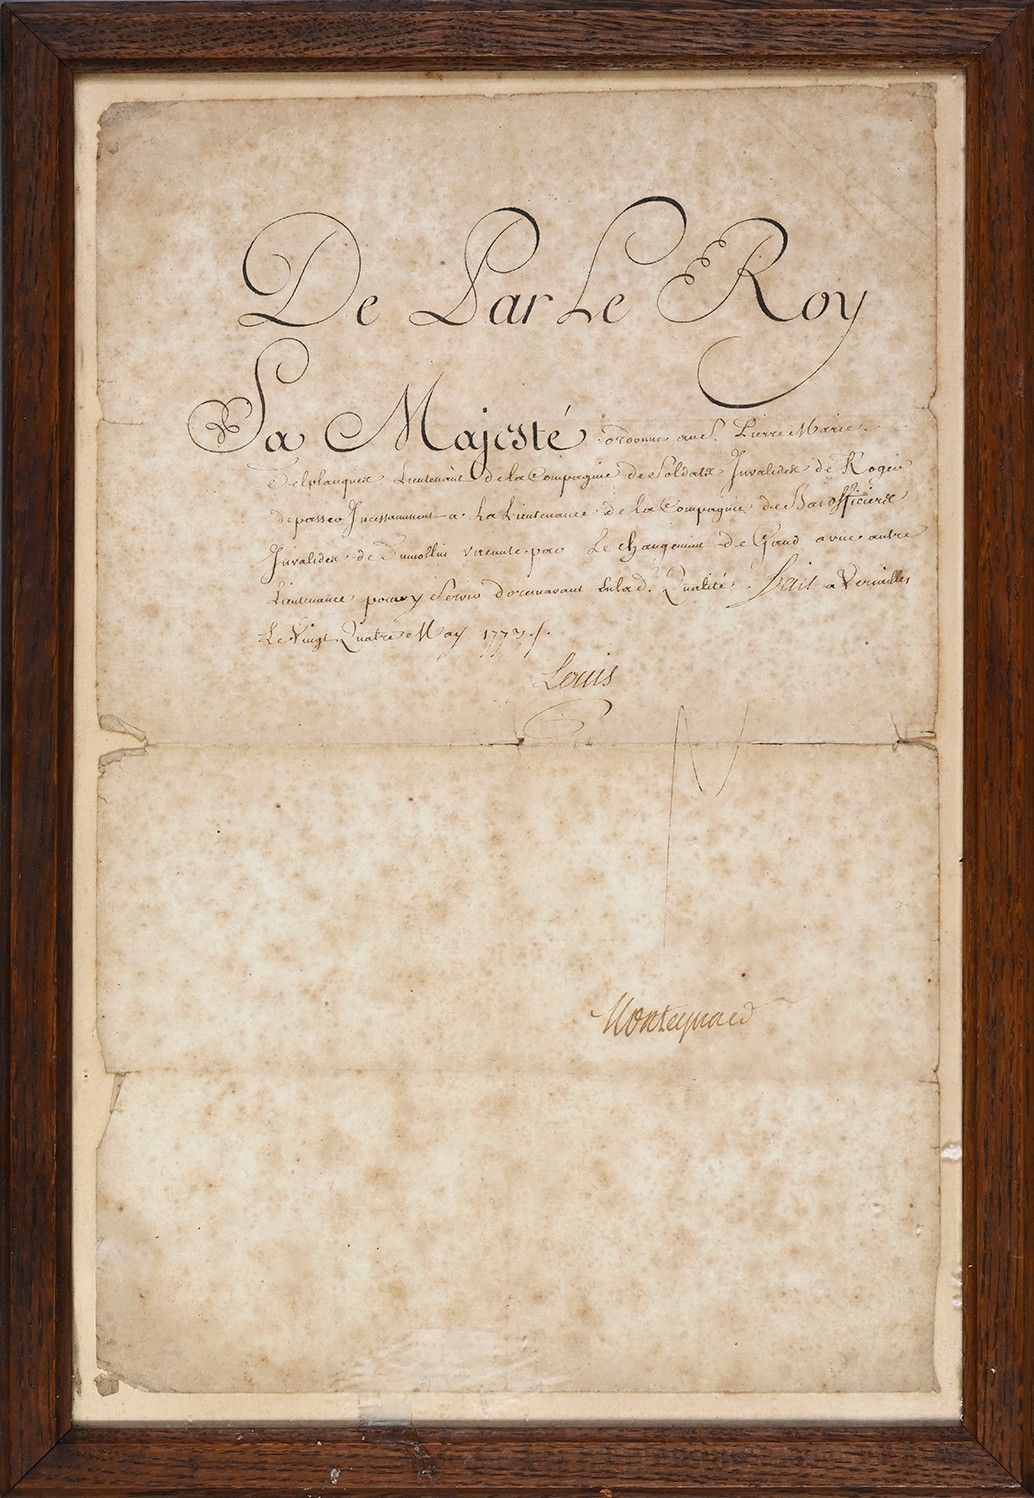 De Par Le Roy
Sa Majesté ordonne au S. Pierre Marie
Delplanque Lieutenant de la Compagnie de Soldats Invalides de
de passer Incessamment a La Lieutenance de la Compagnie de Bas officiers
Invalides de vacante par Le changement de Gand a une autre
Lieutenance pour y Servir Dorenavant en lad. Qualité. Fait a Versailles
Le Vingt Quatre May 1773 ./.
Louis
Monteynard